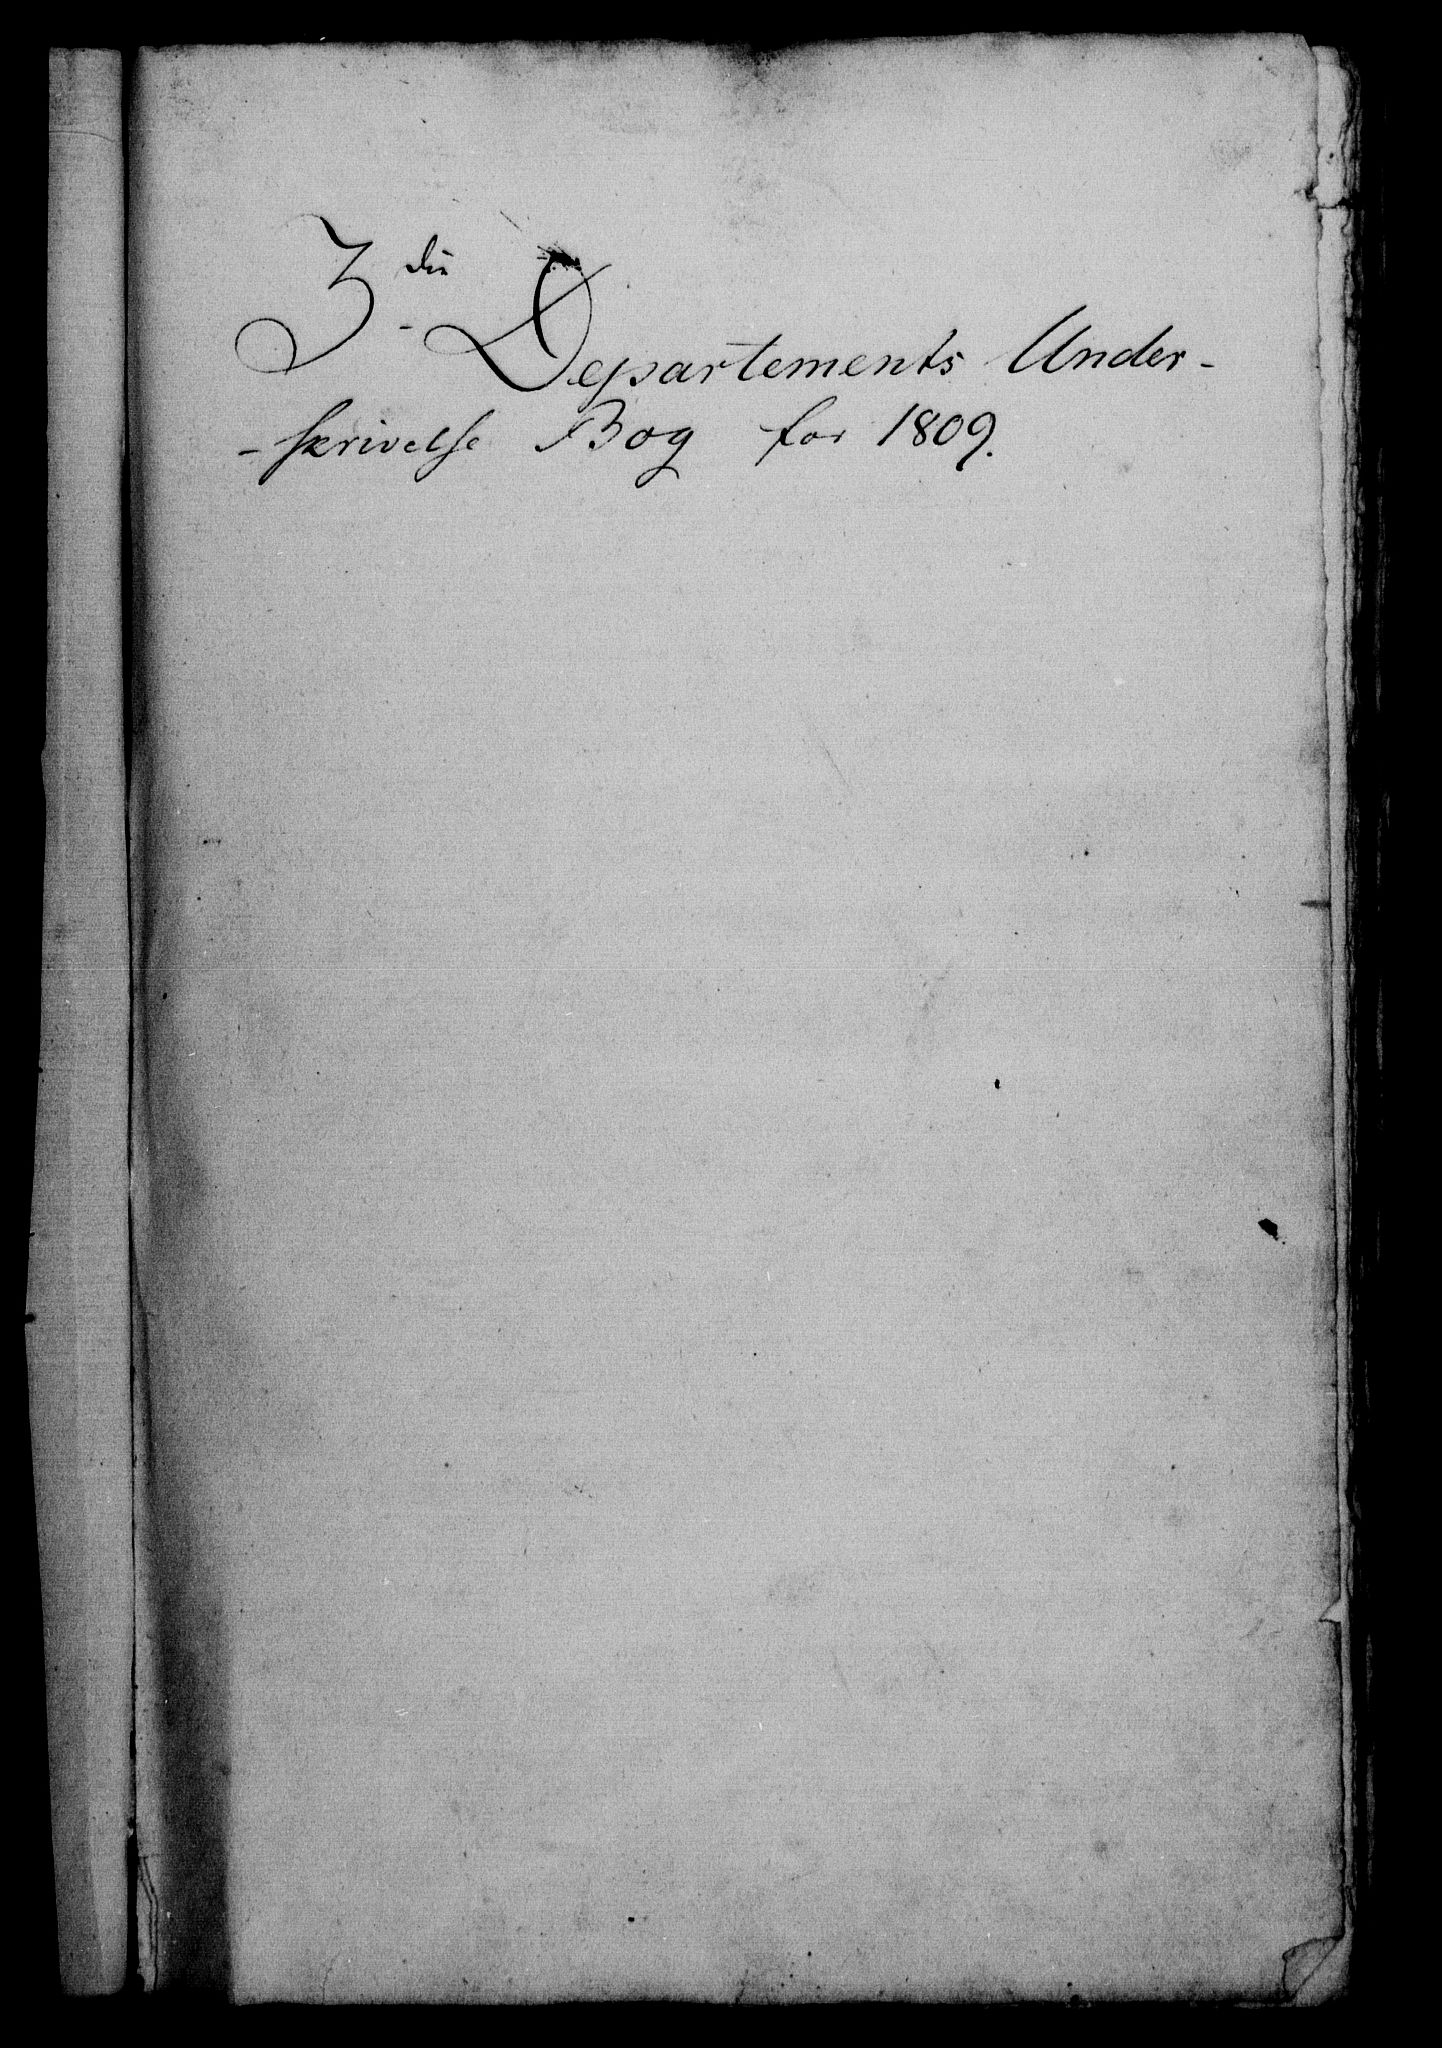 3die Departements Under-
-skrivelse Bog for 1809.